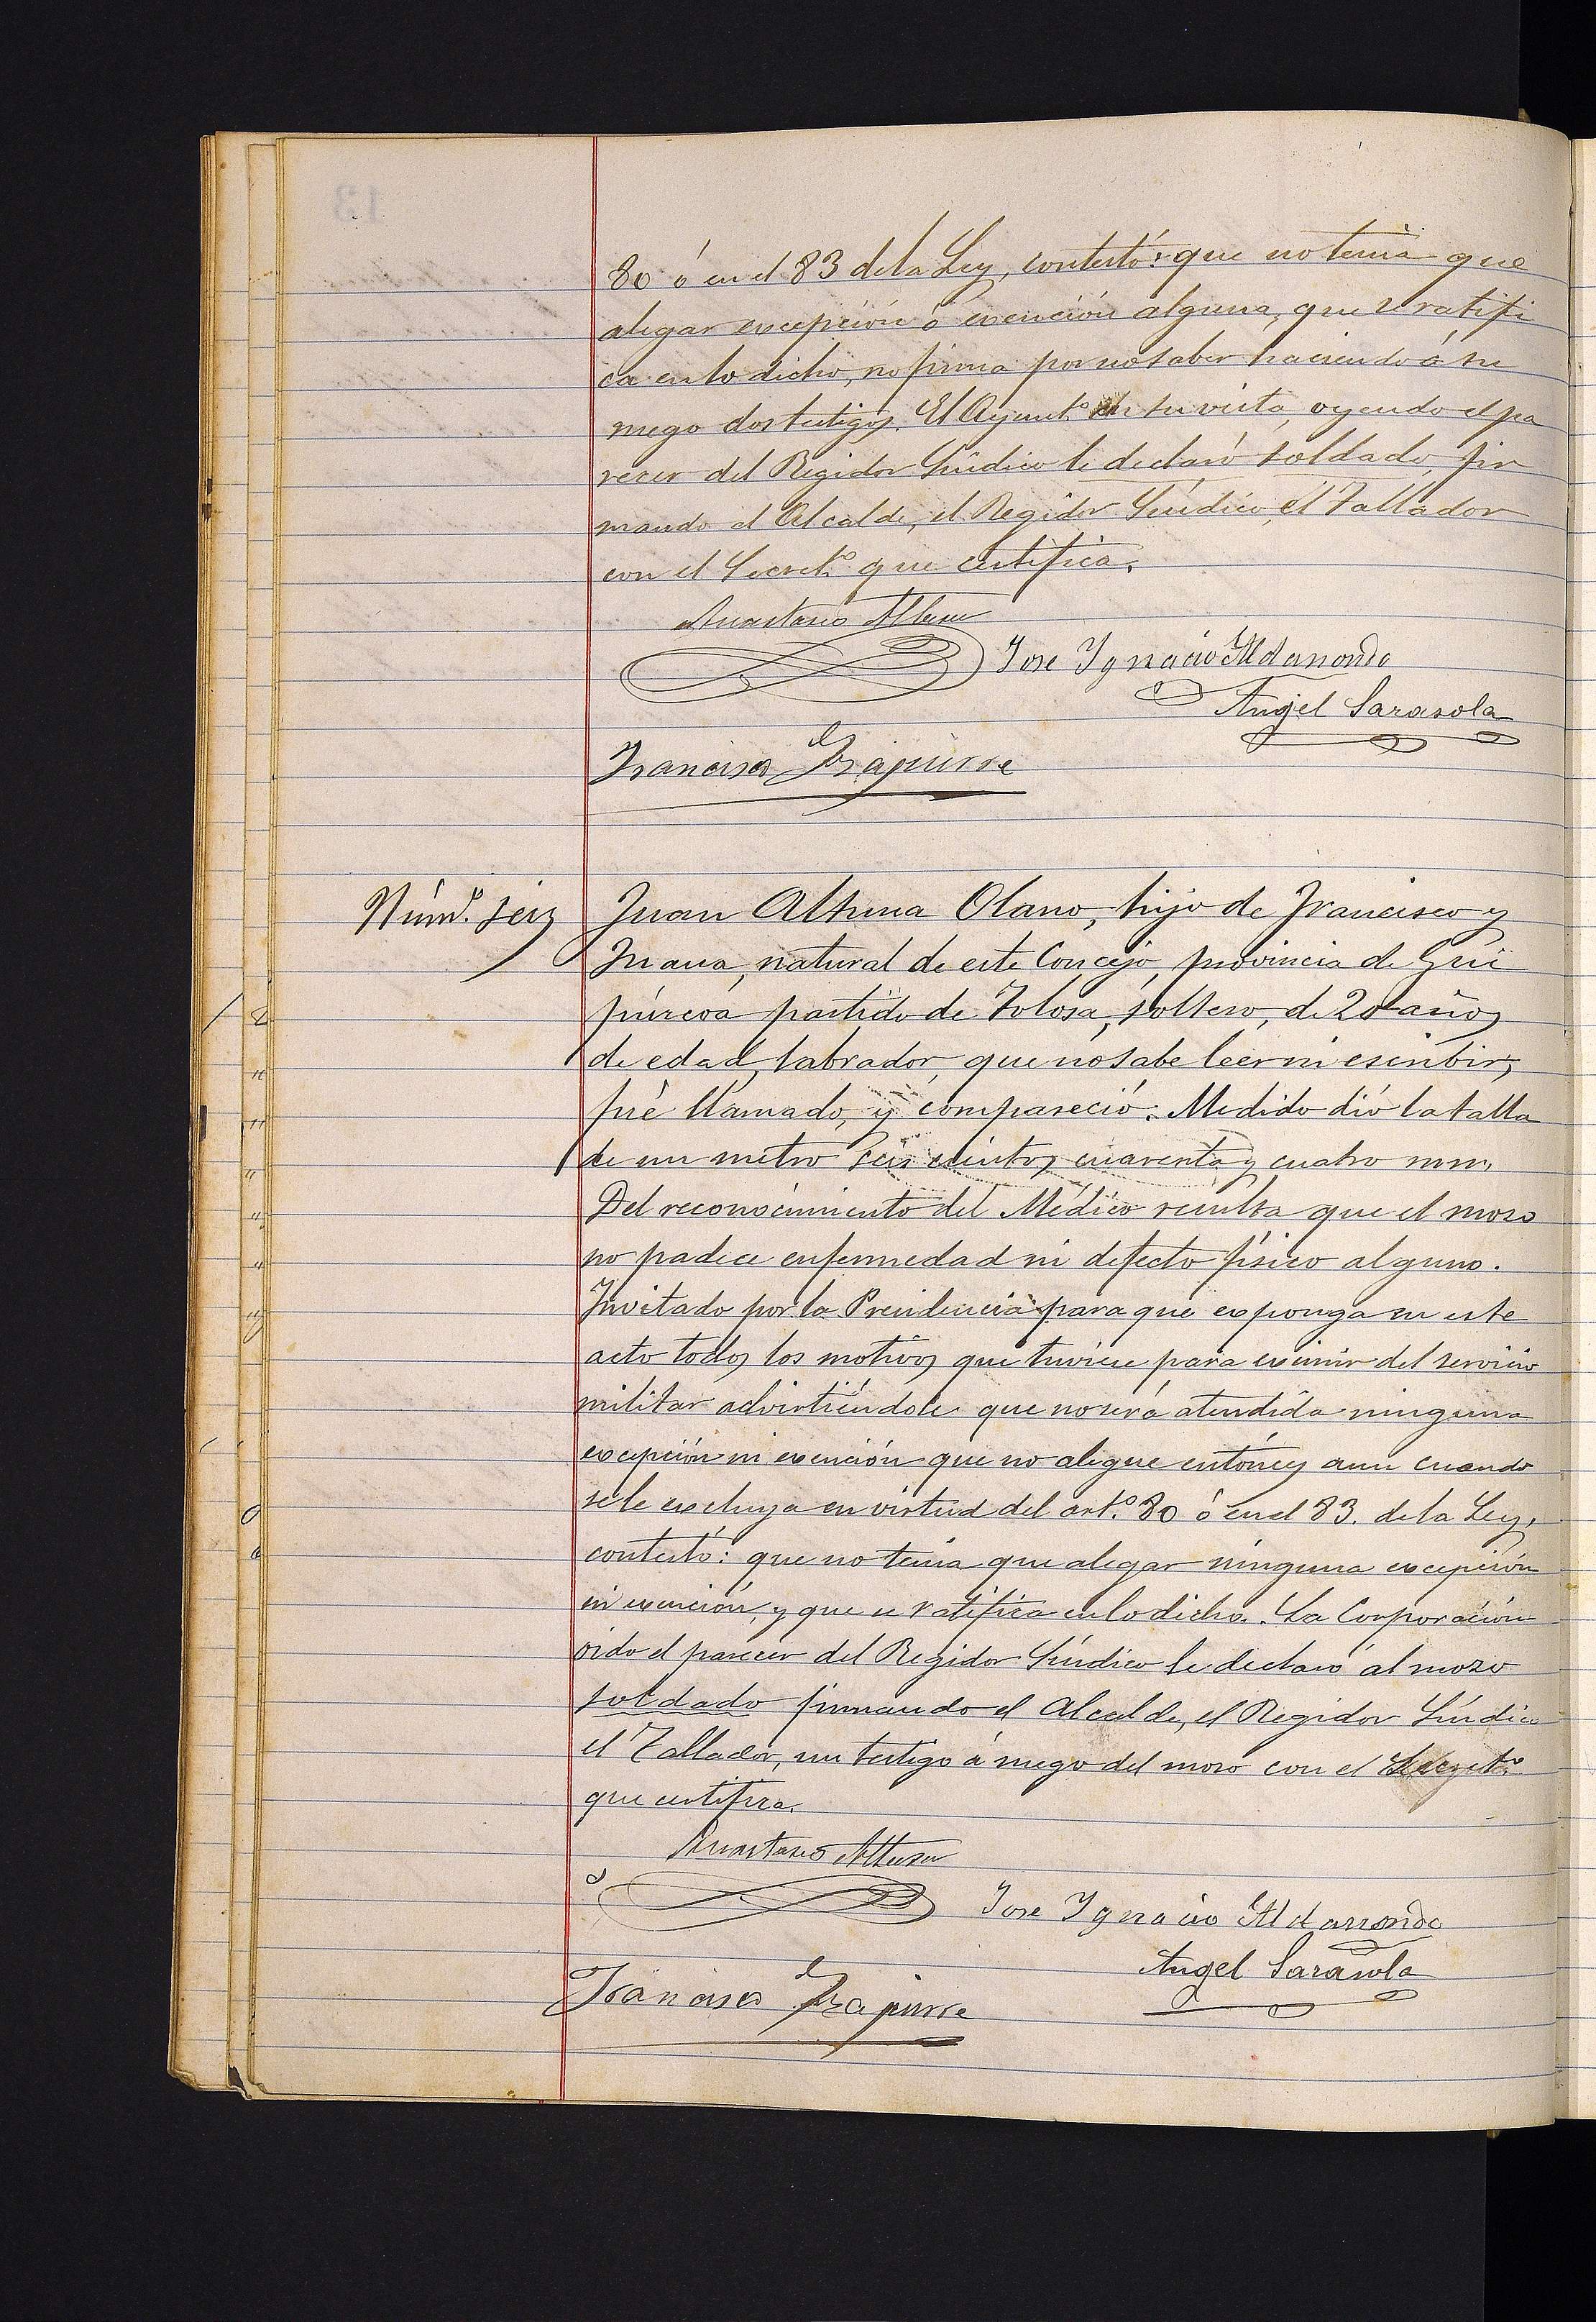 80 ó en el 83 de la Ley, contestó: que no tenia que
alegar excepción ó exención alguna, que se ratifi
ca en lo dicho, no firma por no saber haciendo á su
ruego dos testigos. El Ayunt.º en su vista, oyendo el pa
recer del Regidor Síndico le declaró soldado, fir
mando el Alcalde, el Regidor Síndico, el Tallador
con el Secret.º que certifica.
Anastasio Altuna
Jose Ygnacio Aldanondo
Angel Sarasola
Francisco Izaguirre
Núm.º seis
Juan Altuna Olano, hijo de Francisco y
Juana, natural de este Concejo, provincia de Gui
púzcoa, partido de Tolosa, soltero, de 20 años
de edad, labrador, que no sabe leer ni escribir,
fué llamado, y compareció. Medido dió la talla
de un metro seis cientos cuarenta y cuatro mm.
Del reconocimiento del Médico resulta que el mozo
no padece enfermedad ni defecto físico alguno.
Invitado por la Presidencia para que exponga en este
acto todos los motivos que tuviese para eximir del servicio
militar advirtiéndole que no será atendida ninguna
excepción ni exención que no alegue entónces aun cuando
se le excluya en virtud del art.º 80 ó en el 83. de la Ley,
contestó: que no tenia que alegar ninguna excepción
ni exención, y que se ratifica en lo dicho. La Corporación
oido el parecer del Regidor Síndico le declaró al mozo
soldado firmando el Alcalde, el Regidor Síndico
el Tallador, un testigo á ruego del mozo con el Secret.º
que certifica.
Anastasio Altuna
Jose Ygnacio Aldanondo
Angel Sarasola
Francisco Izaguirre